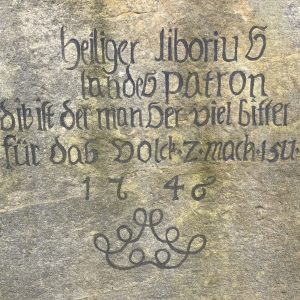 heiliger liborius
landes patron
dit ist der man der viel bittet
für das volck·2·mach·15
1746